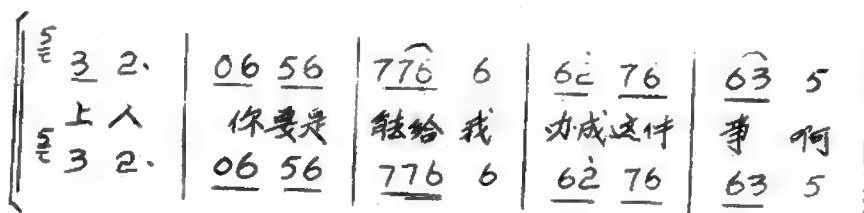 5 3 2. | 06 56 | 776 6 | 62̇ 76 | 63 5
上人 你要是 能给我 办成这件 事 啊
5 3 2. | 06 56 | 776 6 | 62̇ 76 | 63 5